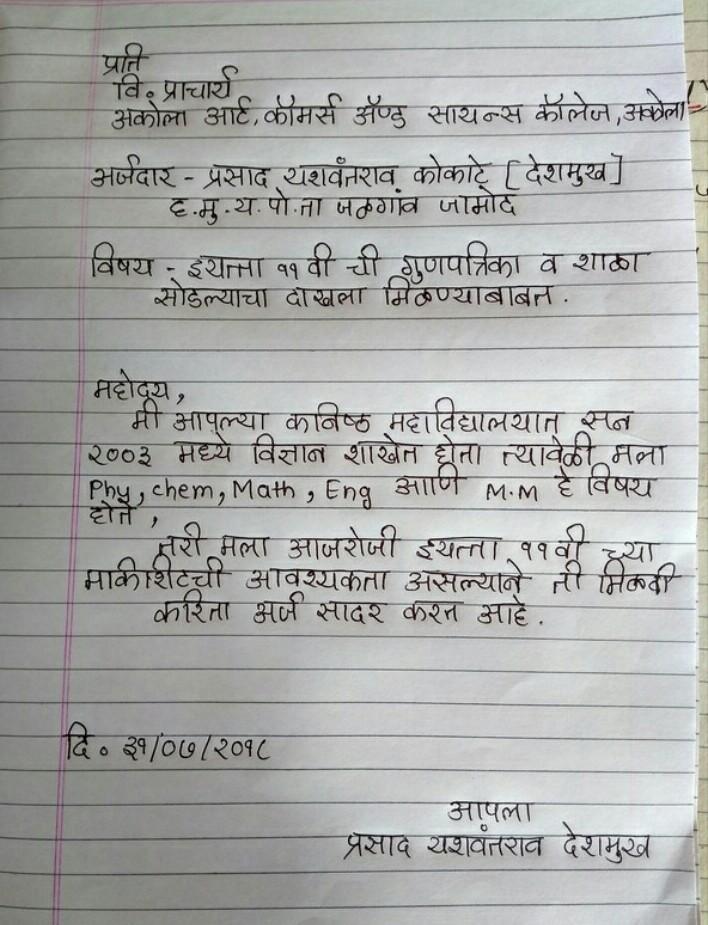 प्रति
वि. प्राचार्य
अकोला आर्ट, कॉमर्स ॲण्ड सायन्स कॉलेज, अकोला
अर्जदार - प्रसाद यशवंतराव कोकाटे [देशमुख]
ह.मु.य.पो.ता जळगांव जामोद
विषय - इयत्ता ११ वी ची गुणपत्रिका व शाळा
सोडल्याचा दाखला मिळण्याबाबत.
महोदय,
मी आपल्या कनिष्ठ महाविद्यालयात सन
२००३ मध्ये विज्ञान शाखेत होता त्यावेळी मला
Phy, chem, Math, Eng आणि M.M हे विषय
होते,
तरी मला आजरोजी इयत्ता ११वी च्या
मार्कशिटची आवश्यकता असल्याने ती मिळवी
करिता अर्ज सादर करत आहे.
दि. ३१/०७/२०१८
आपला
प्रसाद यशवंतराव देशमुख